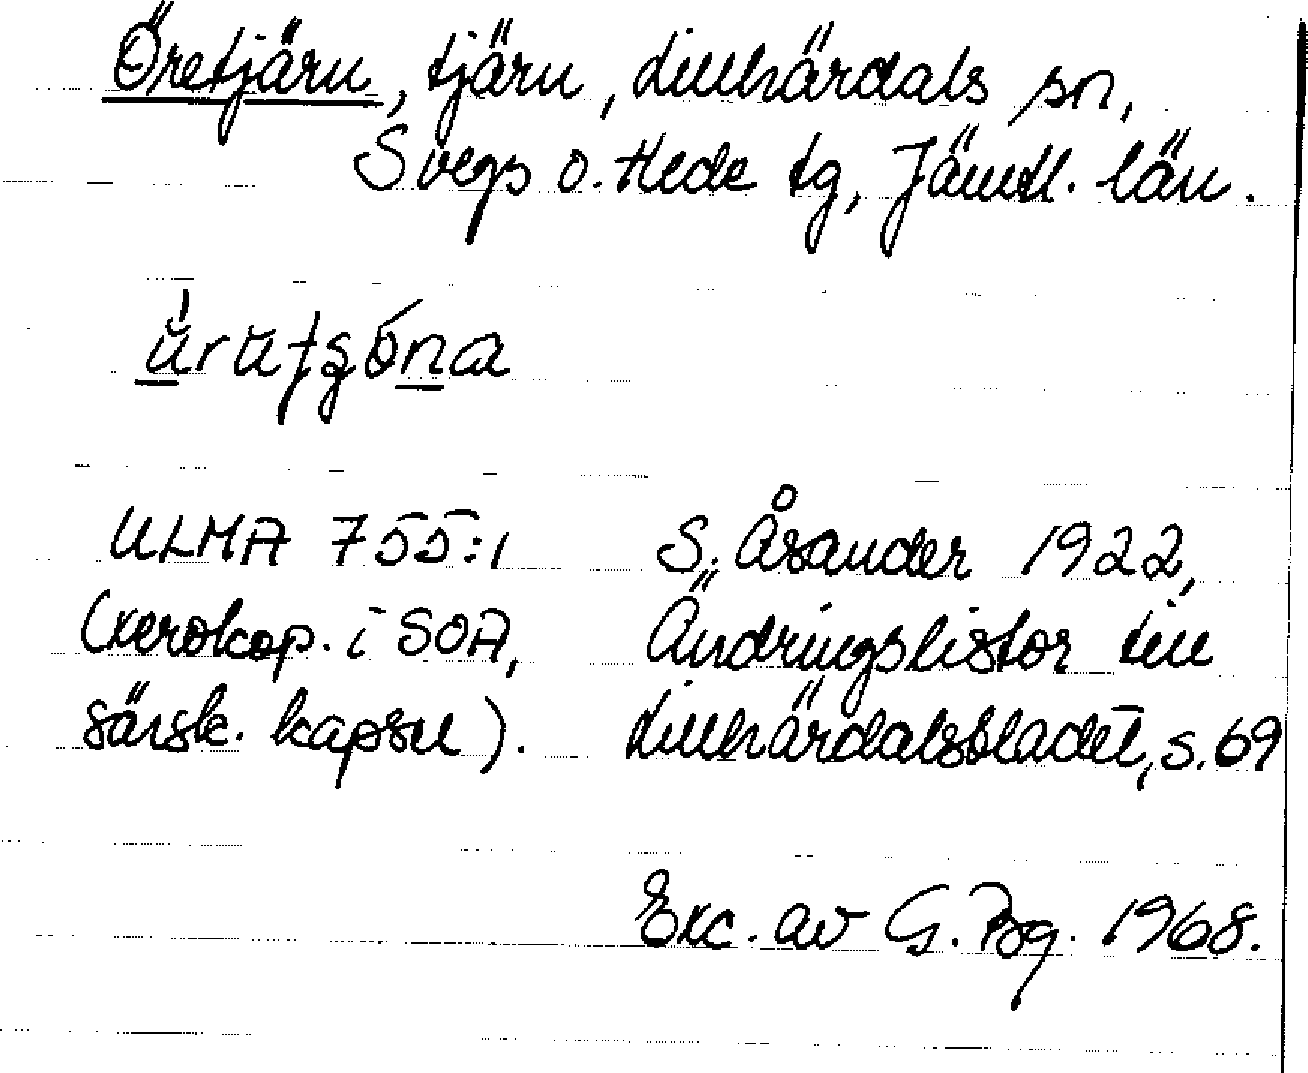 Öretjärn, tjärn, Lillhärdals sn,
Svegs o. Hede tg, Jämtl. län.
ULMA 755:1
(xerokop. i SOA,
särsk. kapsel).
S. Åsander 1922,
Ändringslistor till
Lillhärdalsbladet, s. 69
Exc. av G. Bg. 1968.